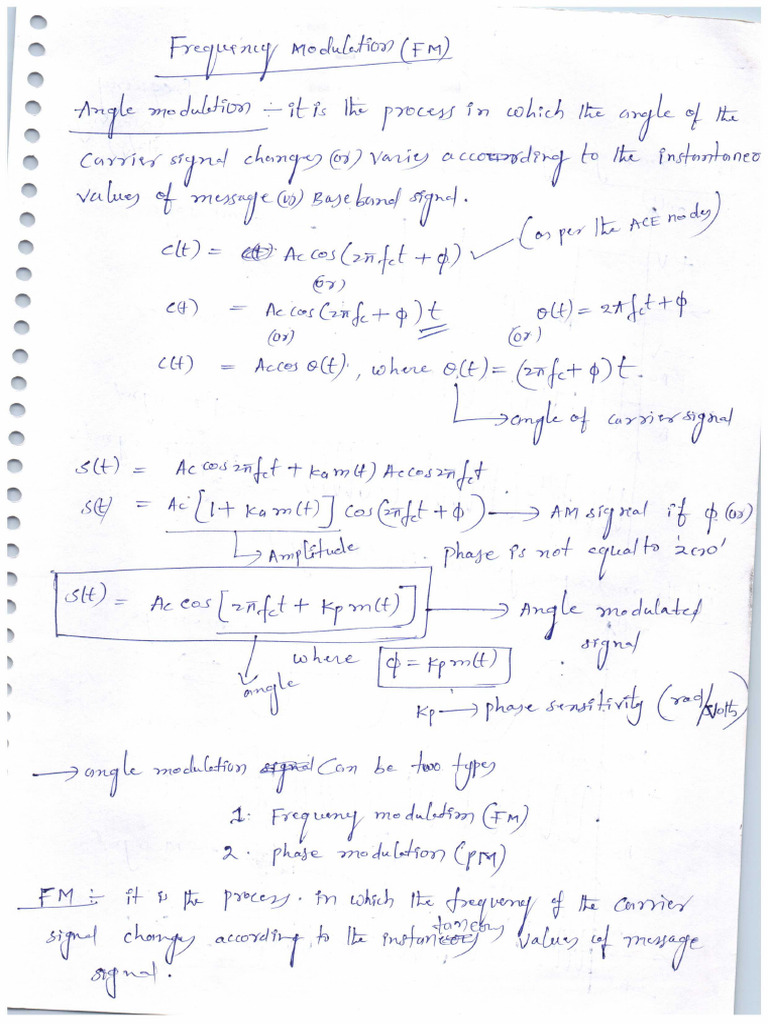 Frequency Modulation (FM)
Angle modulation :- it is the process in which the angle of the
carrier signal changes (or) varies according to the instantaneo
values of message (or) Baseband signal.
c(t) = Ac cos(2πfct + φ) ✓ (as per the ACE notes)
(or)
c(t) = Ac cos(2πfc + φ)t θ(t) = 2πfct + φ
(or) (or)
c(t) = Ac cos θ(t), where θ(t) = (2πfc + φ)t.
→ angle of carrier signal
s(t) = Ac cos2πfct + Ka m(t) Ac cos2πfct
s(t) = Ac [1 + Ka m(t)] cos(2πfct + φ) → AM signal if φ (or)
→ Amplitude phase is not equal to 'zero'
s(t) = Ac cos[2πfct + Kp m(t)] → Angle modulated
signal
where φ = Kp m(t)
angle
Kp → phase sensitivity (rad/volts)
→ angle modulation signal can be two types
1. Frequency modulation (FM)
2. phase modulation (PM)
FM :- it is the process in which the frequency of the carrier
signal changes according to the instantaneous values of message
signal.